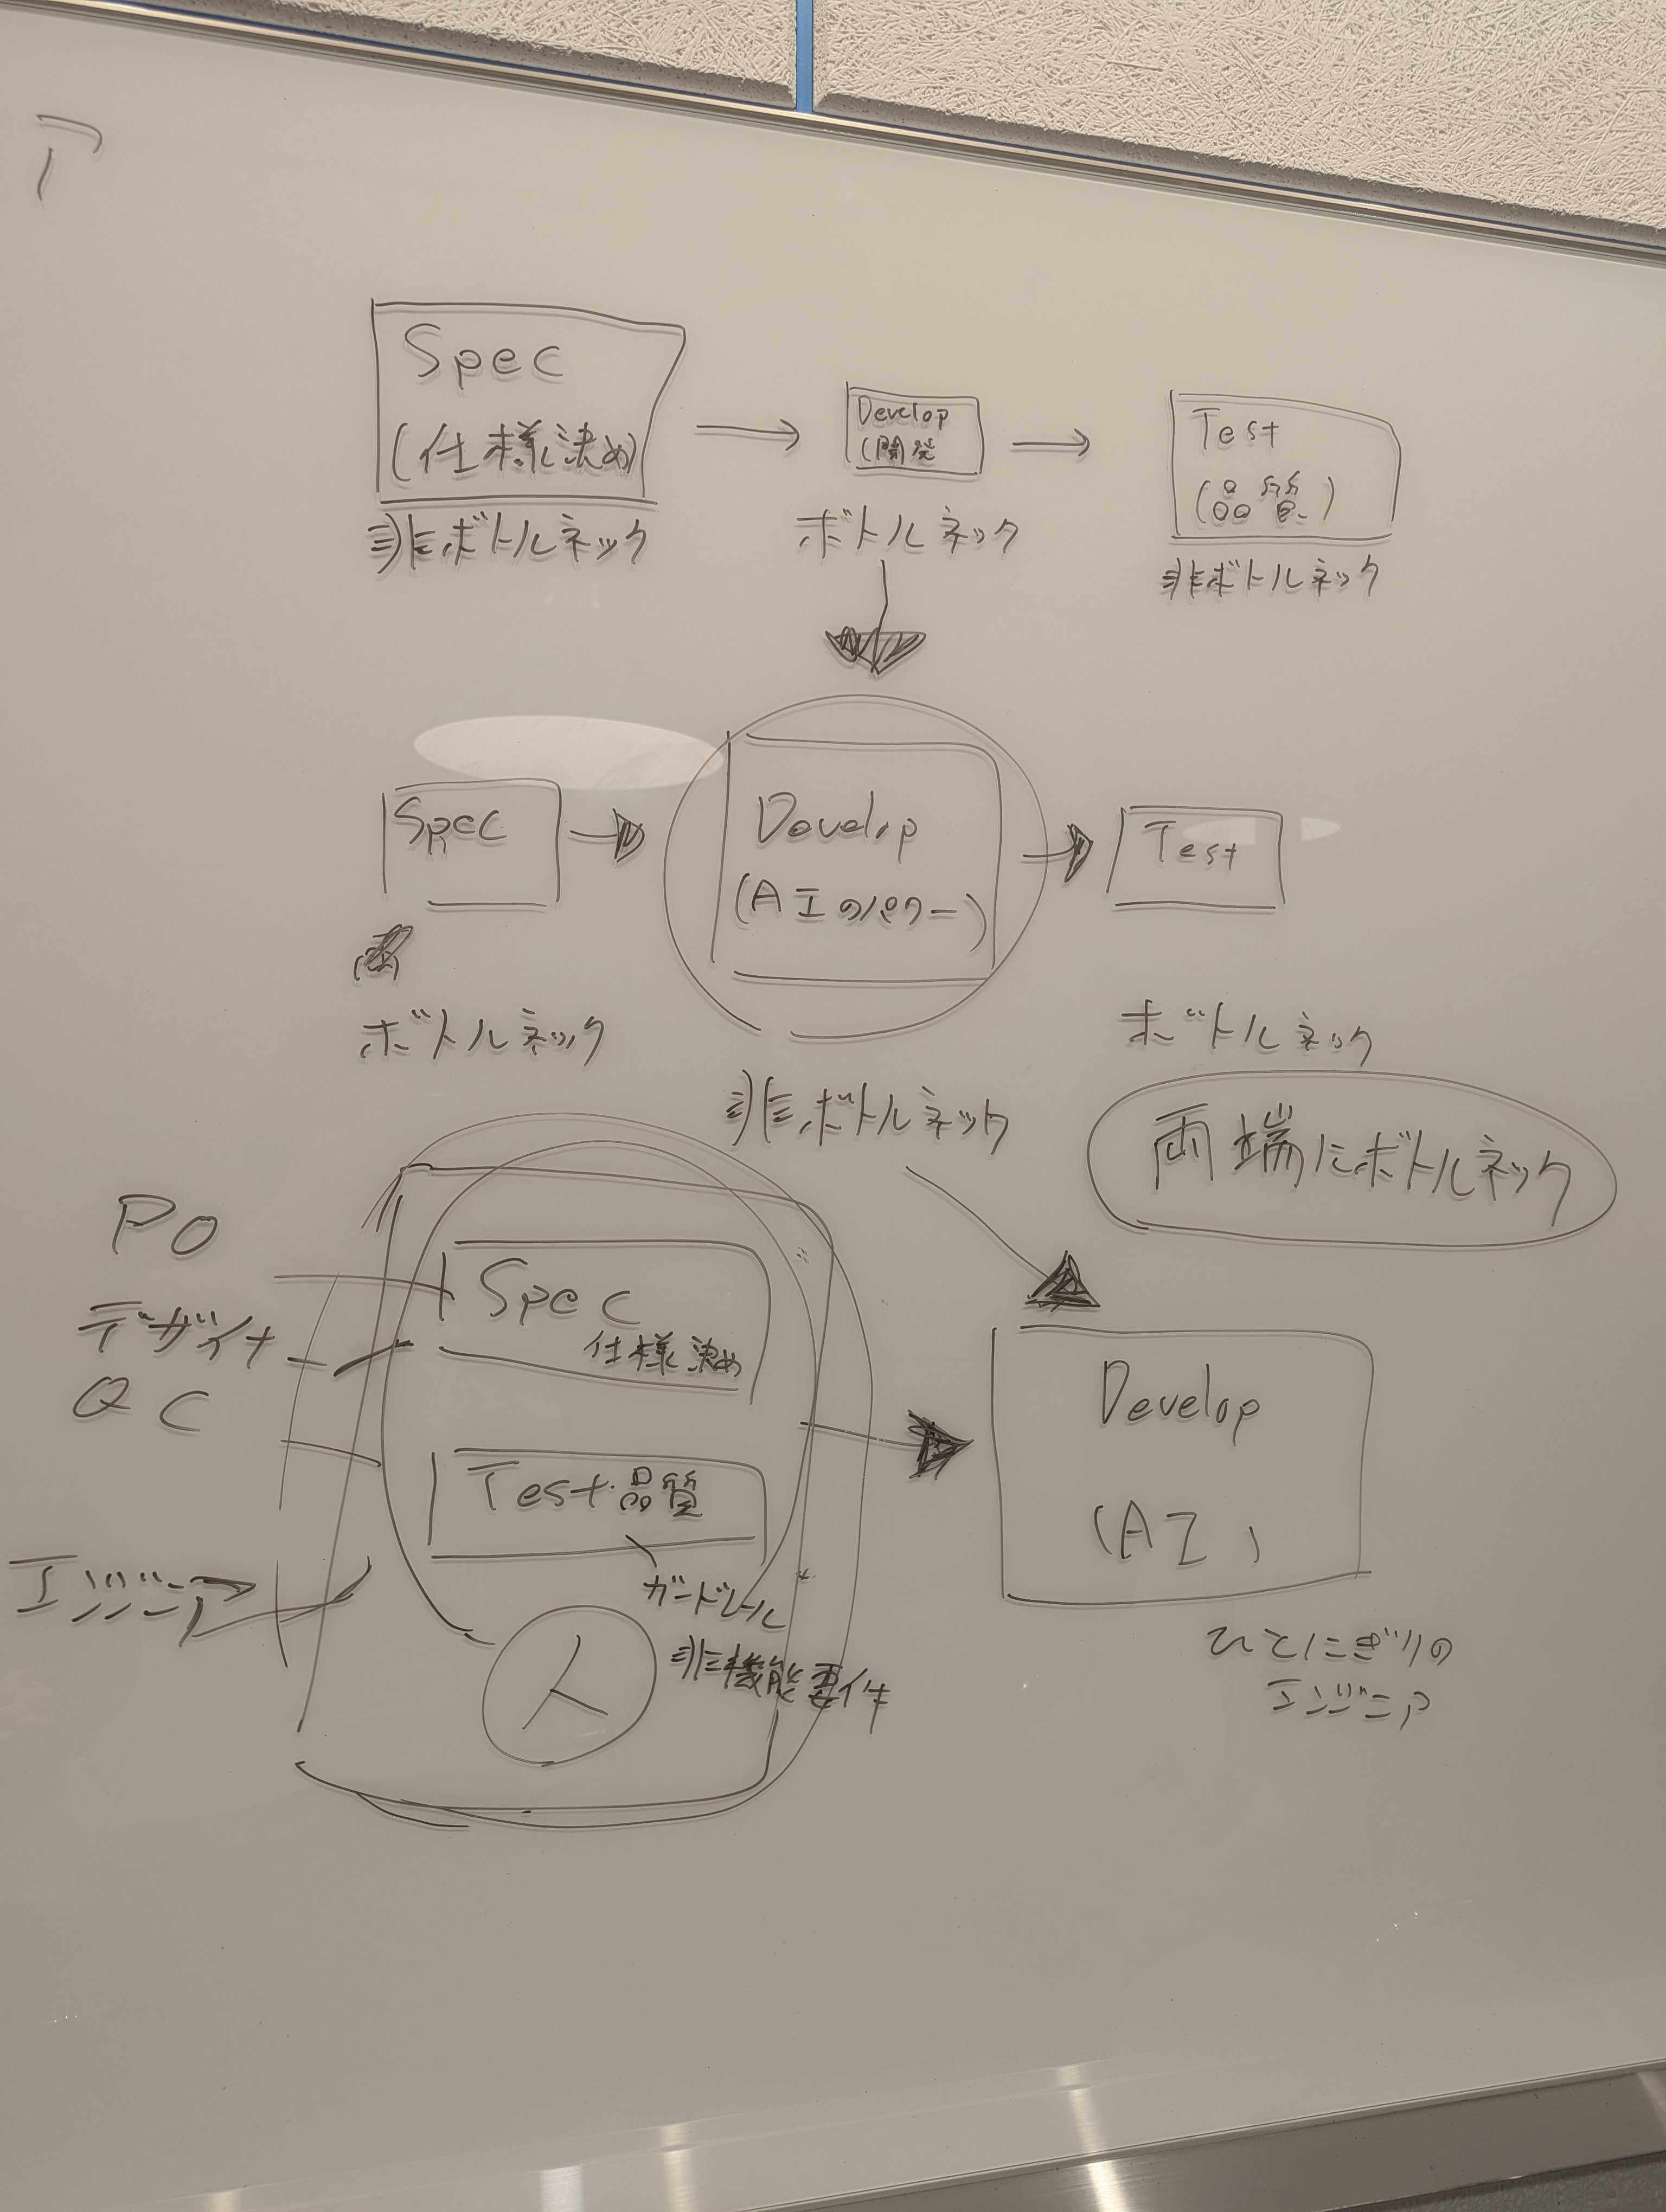 ア
Spec
(仕様決め)
非ボトルネック
Develop
(開発
ボトルネック
Test
(品質)
非ボトルネック
Spec
ボトルネック
Develop
(AIのパワー)
非ボトルネック
Test
ボトルネック
両端にボトルネック
PO
デザイナ
QC
エンジニア
Spec
仕様決め
Test・品質
ガードレール
非機能要件
人
Develop
(AI)
ひとにぎりの
エンジニア